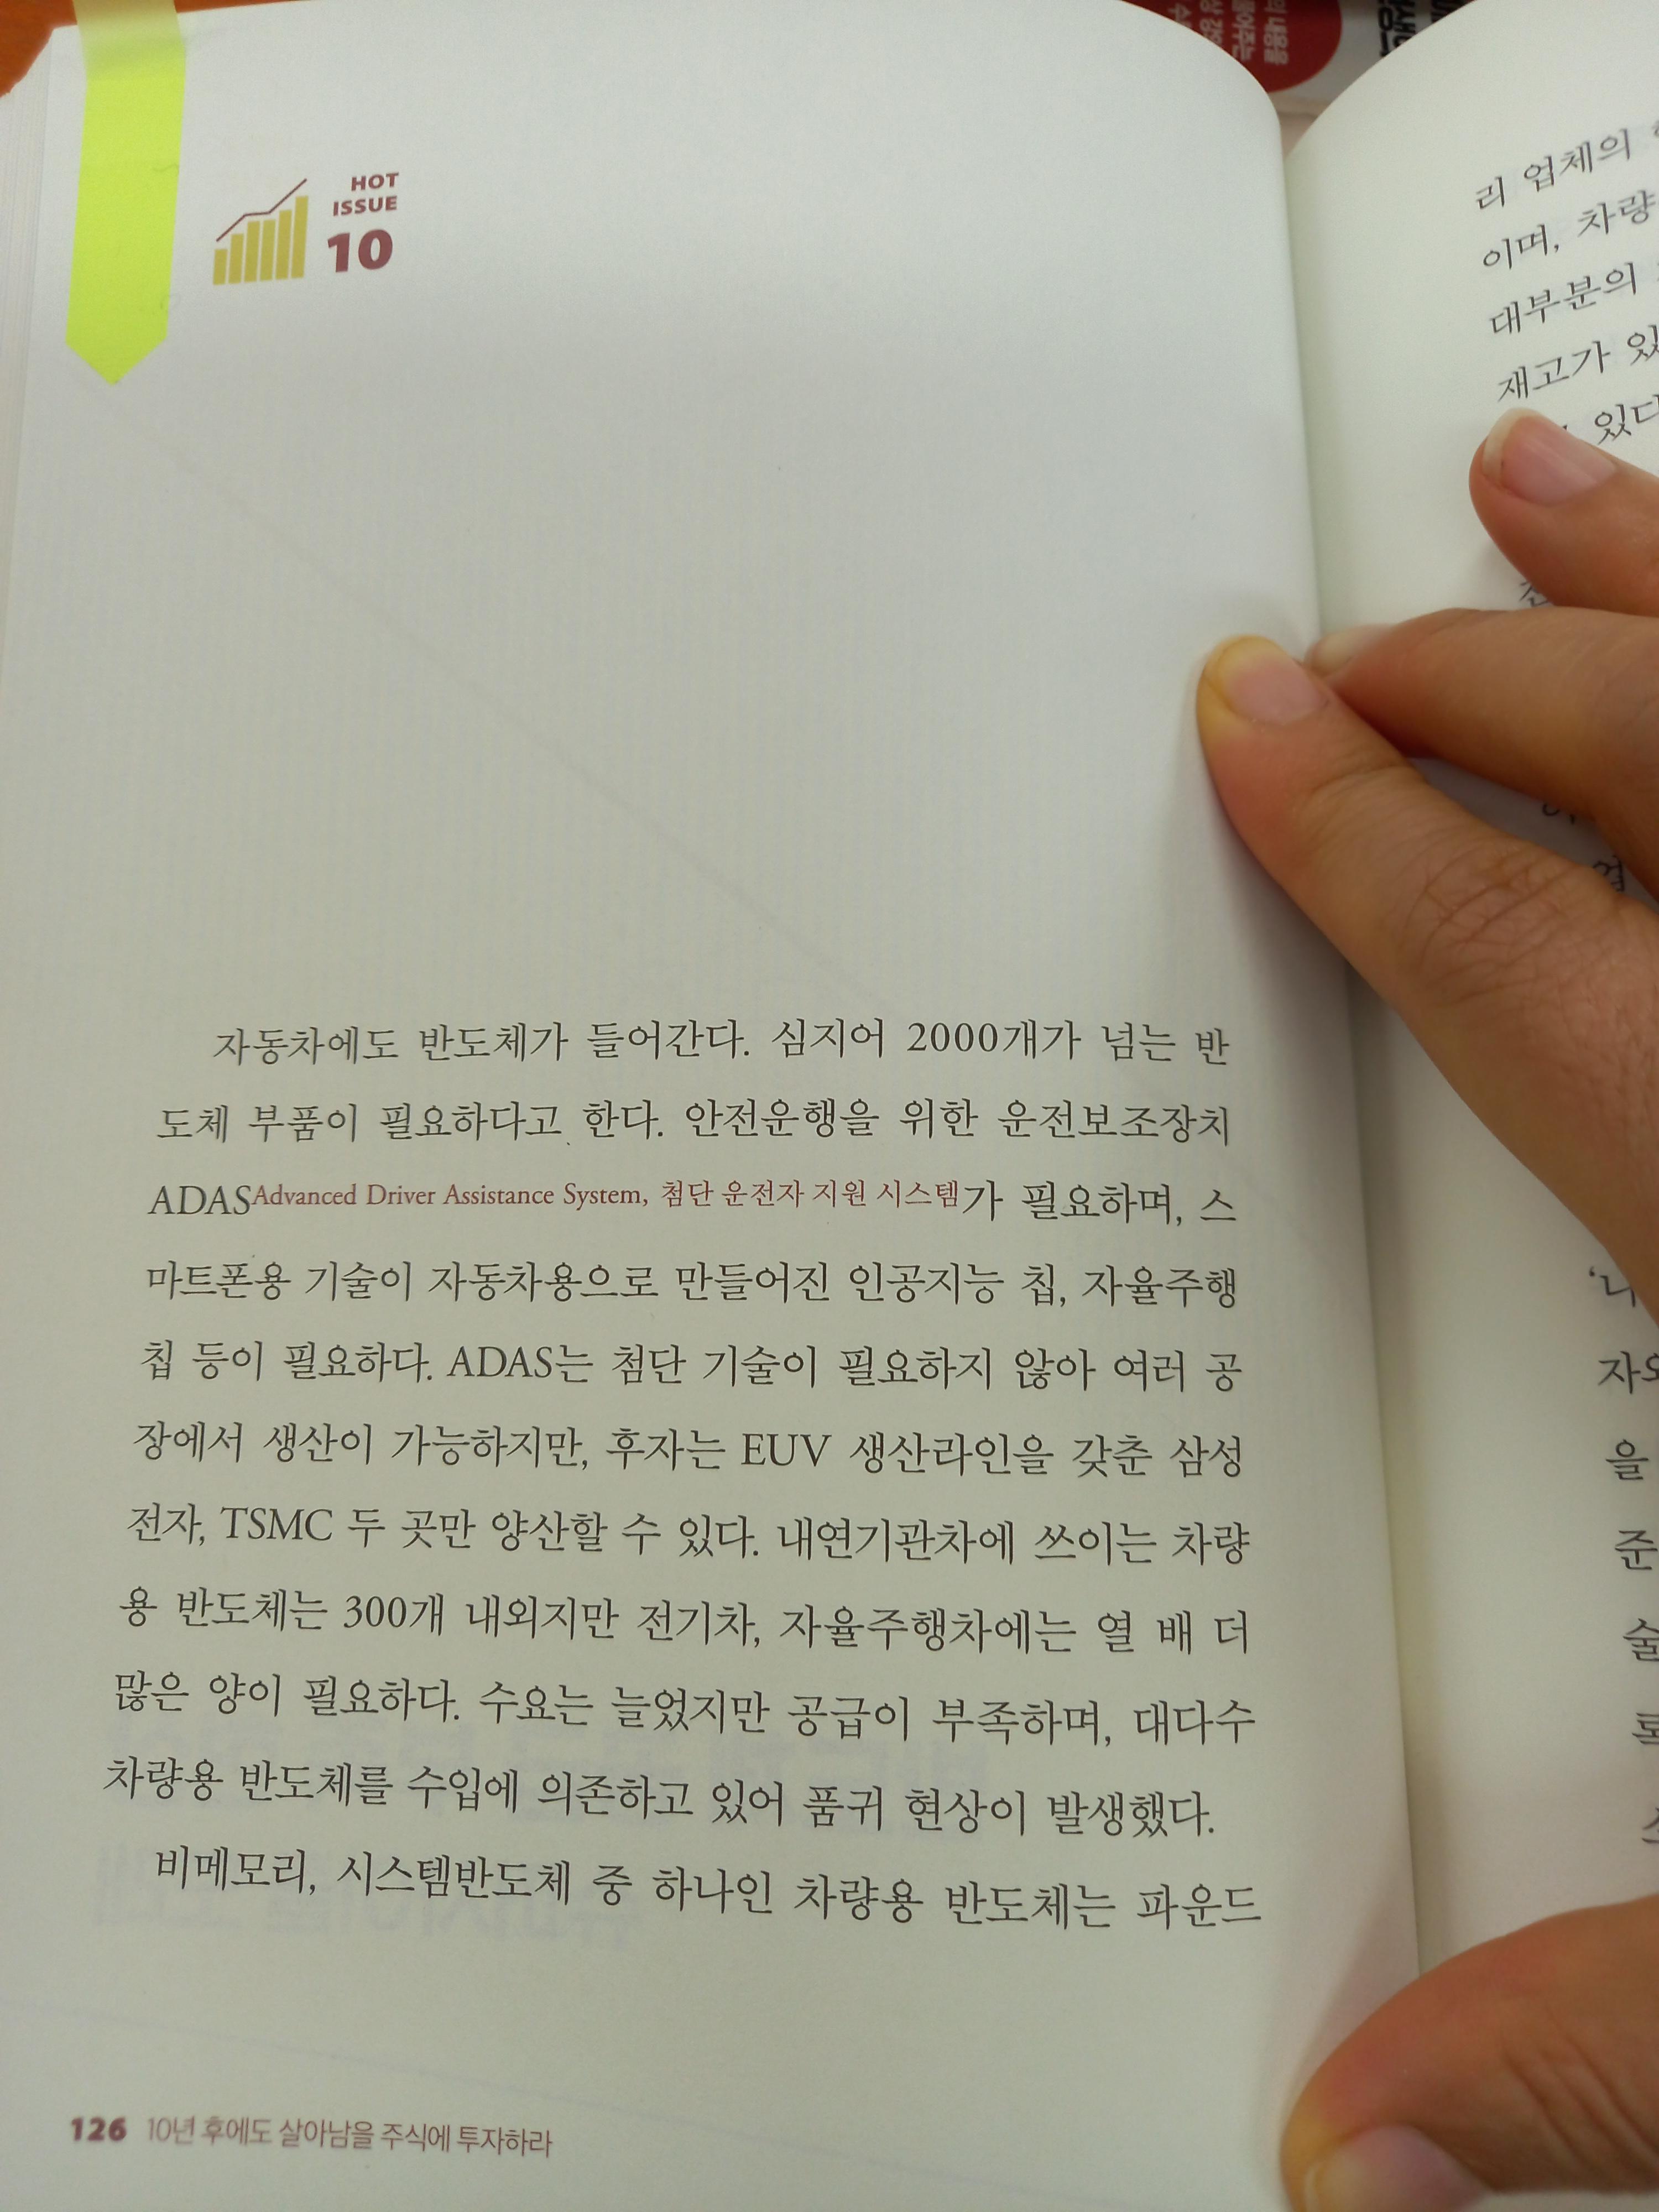 HOT
ISSUE
10
자동차에도 반도체가 들어간다. 심지어 2000개가 넘는 반
도체 부품이 필요하다고 한다. 안전운행을 위한 운전보조장치
ADAS Advanced Driver Assistance System, 첨단 운전자 지원 시스템가 필요하며, 스
마트폰용 기술이 자동차용으로 만들어진 인공지능 칩, 자율주행
칩 등이 필요하다. ADAS는 첨단 기술이 필요하지 않아 여러 공
장에서 생산이 가능하지만, 후자는 EUV 생산라인을 갖춘 삼성
전자, TSMC 두 곳만 양산할 수 있다. 내연기관차에 쓰이는 차량
용 반도체는 300개 내외지만 전기차, 자율주행차에는 열 배 더
많은 양이 필요하다. 수요는 늘었지만 공급이 부족하며, 대다수
차량용 반도체를 수입에 의존하고 있어 품귀 현상이 발생했다.
비메모리, 시스템반도체 중 하나인 차량용 반도체는 파운드
126 10년 후에도 살아남을 주식에 투자하라
리 업체의
이며, 차량
대부분의
재고가
을
준